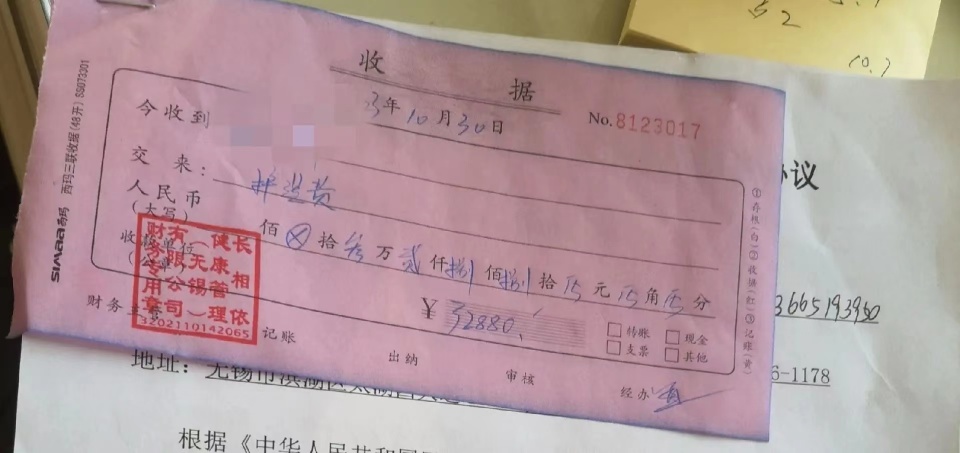 52
10.7
收据
3年10月30日
No.8123017
今收到
交来：护理费
人民币
（大写）
佰⊗拾叁万贰仟捌佰捌拾元角分
¥32880.
收款单位
转账 现金
支票 其他
财务主管
记账
出纳
审核
经办
长相依（无锡）健康管理有限公司
财务专用章
3202110142065
SIMAA西玛
西玛三联收据（48开）SS073301
①存根（白）②收据（红）③记账（黄）
协议
3665193950
6-1178
地址：无锡市滨湖区太湖
根据《中华人民共和国